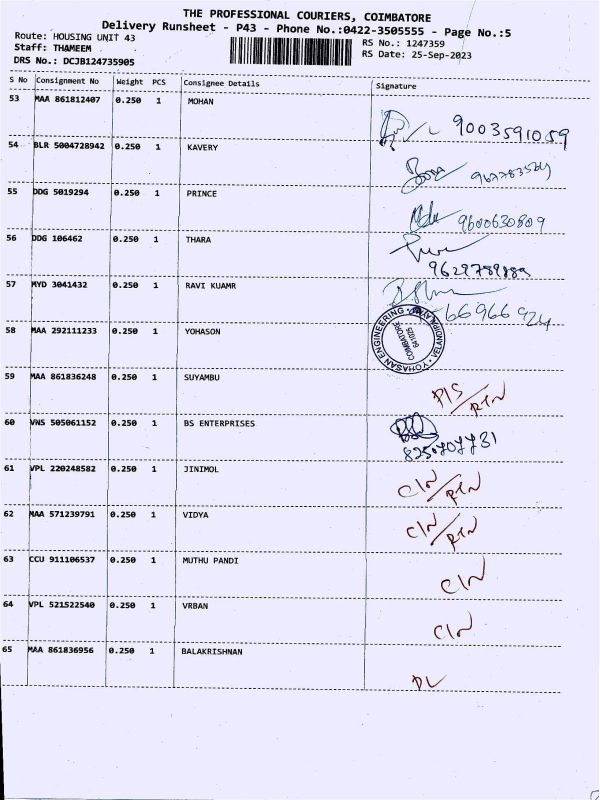 THE PROFESSIONAL COURIERS, COIMBATORE
Delivery Runsheet - P43 - Phone No.:0422-3505555 - Page No.:5
Route: HOUSING UNIT 43
RS No.: 1247359
Staff: THAMEEM
RS Date: 25-Sep-2023
DRS No.: DCJB124735905
S No Consignment No Weight PCS Consignee Details Signature
53 MAA 861812407 0.250 1 MOHAN
9003591059
54 BLR 5004728942 0.250 1 KAVERY
55 DDG 5019294 0.250 1 PRINCE
9600630809
56 DDG 106462 0.250 1 THARA
57 MYD 3041432 0.250 1 RAVI KUAMR
66966924
58 MAA 292111233 0.250 1 YOHASON
YOHASAN ENGINEERING
COIMBATORE
641025
59 MAA 861836248 0.250 1 SUYAMBU
P/S/RTN
60 VNS 505061152 0.250 1 BS ENTERPRISES
61 VPL 220248582 0.250 1 JINIMOL
C/N/RTN
62 MAA 571239791 0.250 1 VIDYA
C/N/RTN
63 CCU 911106537 0.250 1 MUTHU PANDI
C/N
64 VPL 521522540 0.250 1 VRBAN
C/N
65 MAA 861836956 0.250 1 BALAKRISHNAN
DL